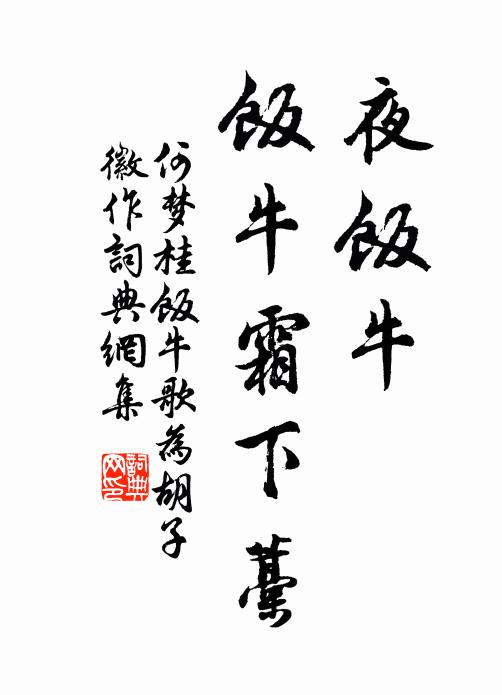 夜飯牛
飯牛霜下藁
何梦桂飯牛歌為胡子
徽作詞典網集
詞典網印